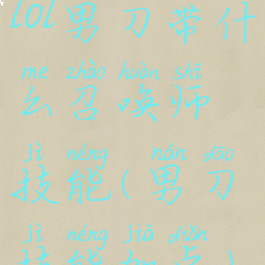 lol男刀带什
me zhào huàn shī
么召唤师
jì néng nán dāo
技能(男刀
jì néng jiā diǎn
技能加点)